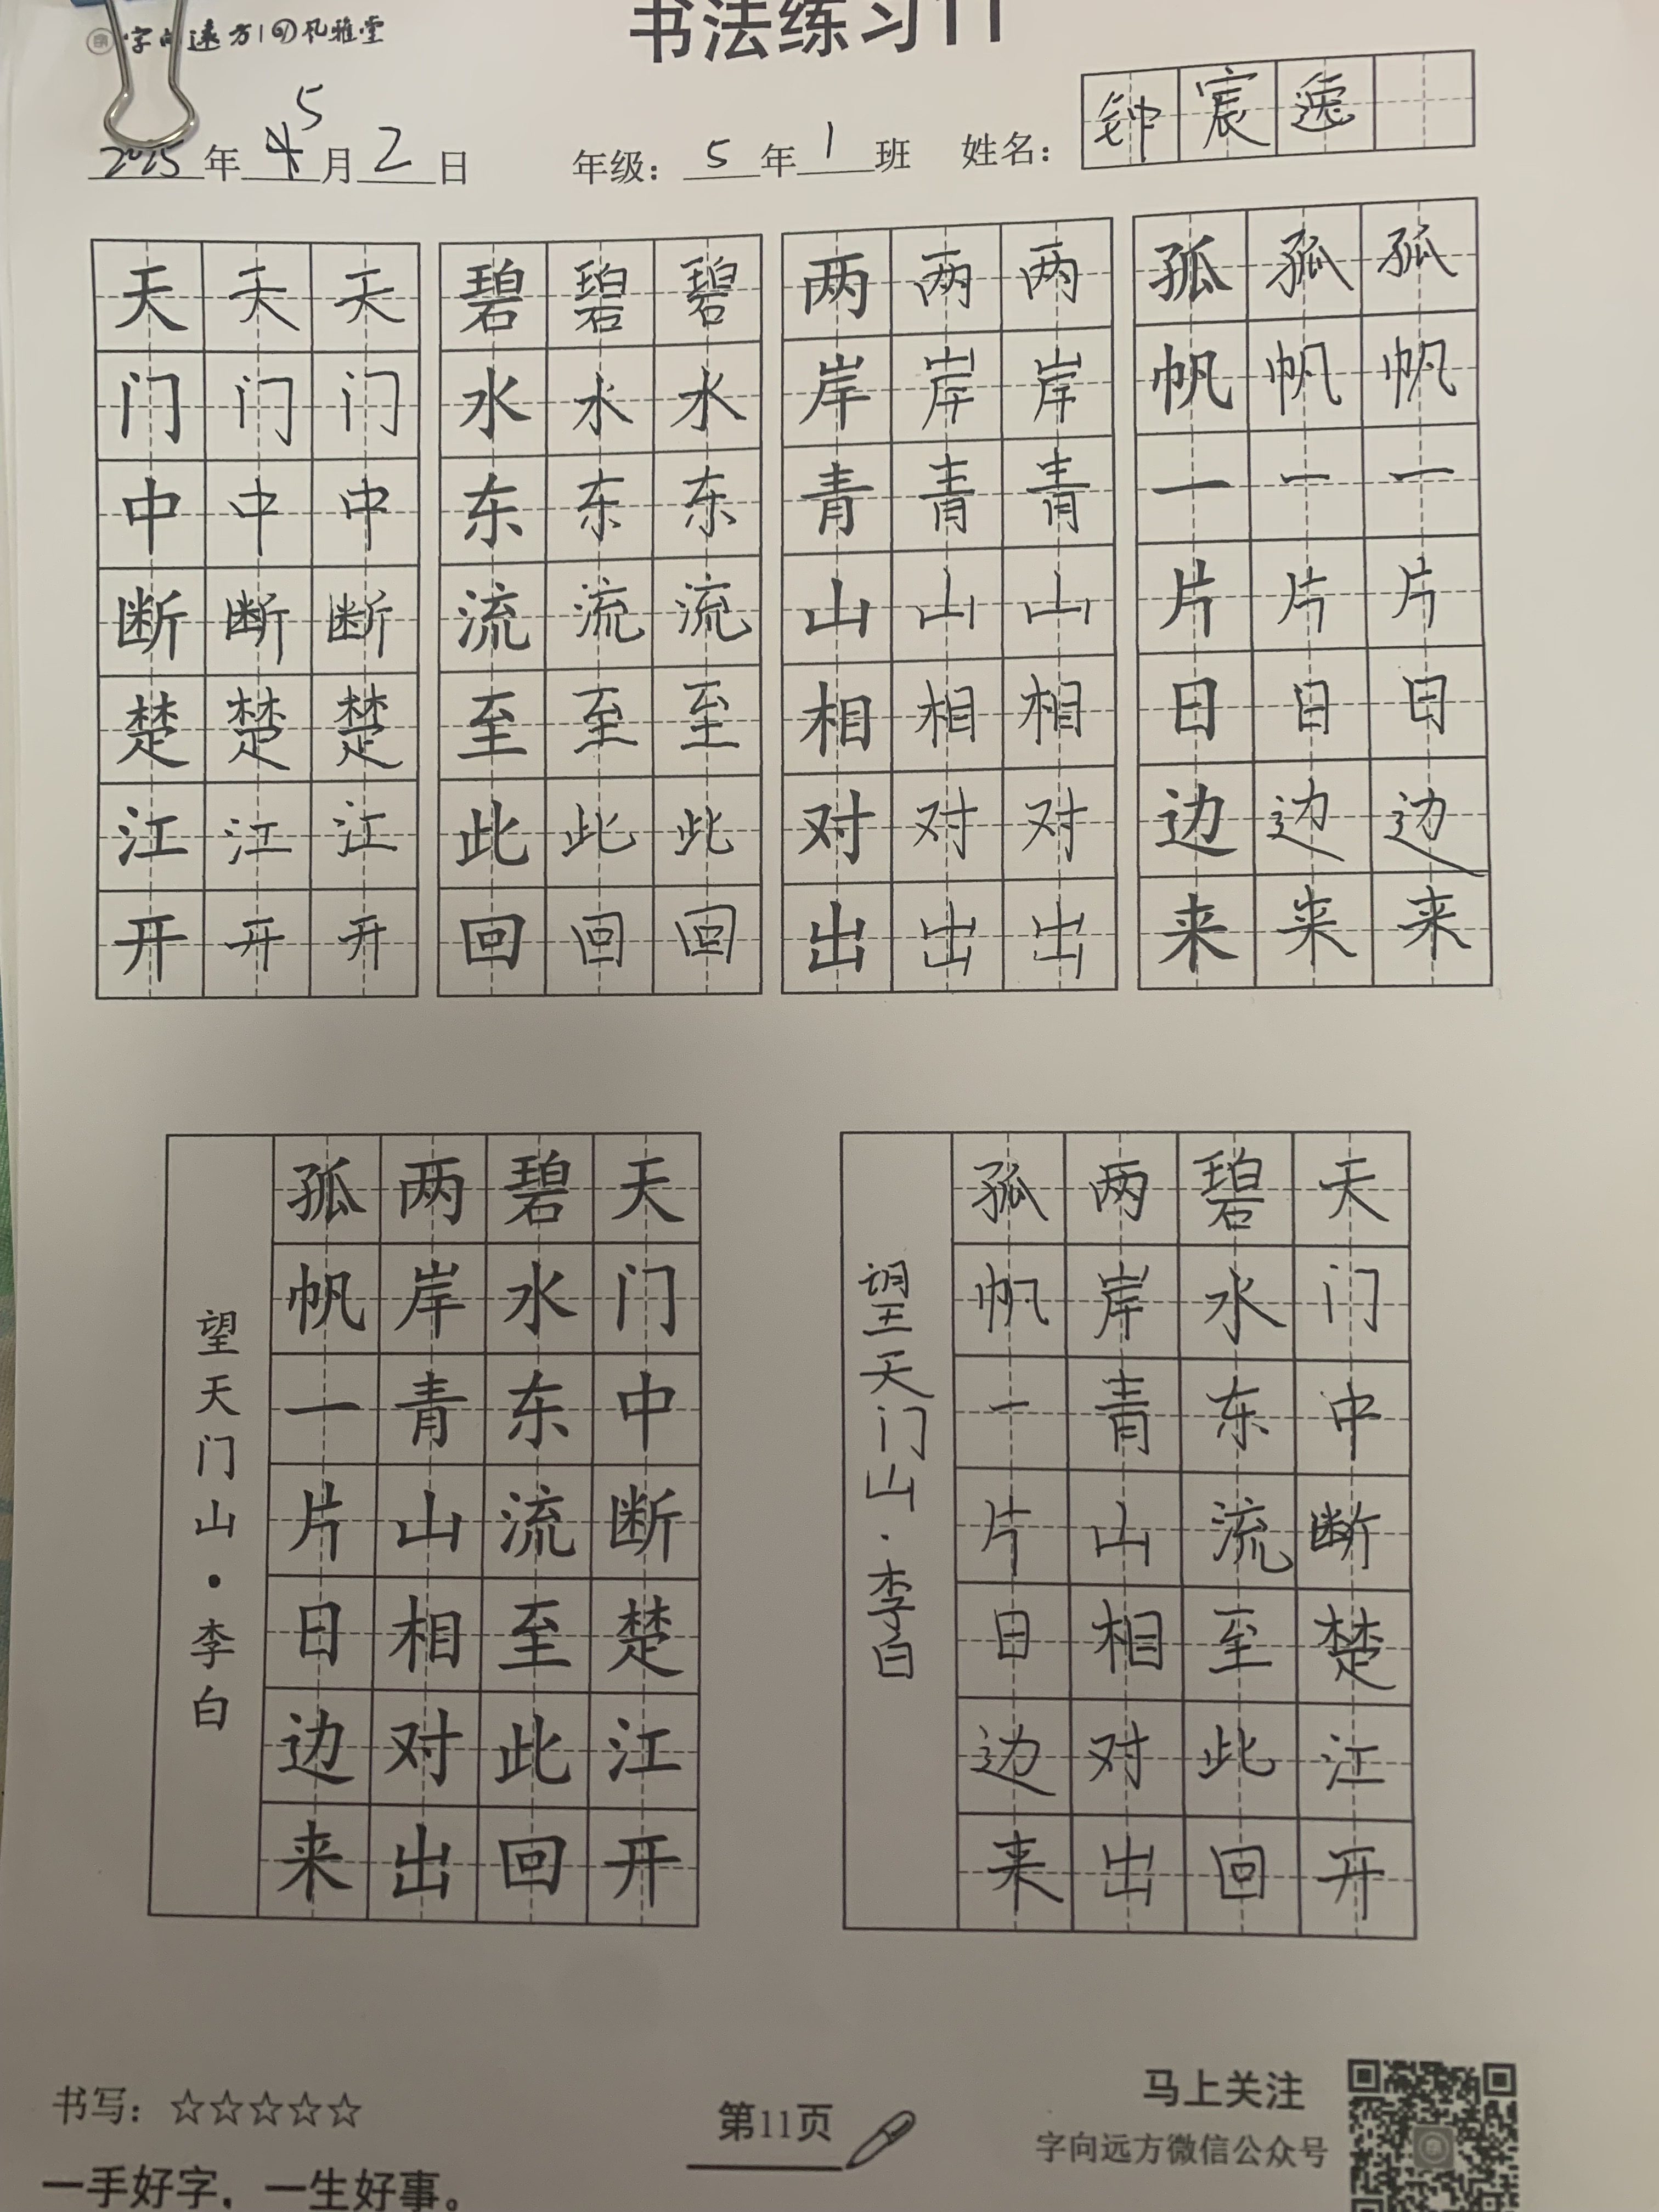 字向远方 风雅堂
书法练习11
2025年4 5月2日 年级：5年1班 姓名：钟宸逸
天天天 碧碧碧 两两两 孤孤孤
门门门 水水水 岸岸岸 帆帆帆
中中中 东东东 青青青 一一一
断断断 流流流 山山山 片片片
楚楚楚 至至至 相相相 日日日
江江江 此此此 对对对 边边边
开开开 回回回 出出出 来来来
天门中断楚江开
碧水东流至此回
两岸青山相对出
孤帆一片日边来
望天门山·李白
天门中断楚江开
碧水东流至此回
两岸青山相对出
孤帆一片日边来
望天门山·李白
书写：☆☆☆☆☆
一手好字，一生好事。
第11页
马上关注
字向远方微信公众号